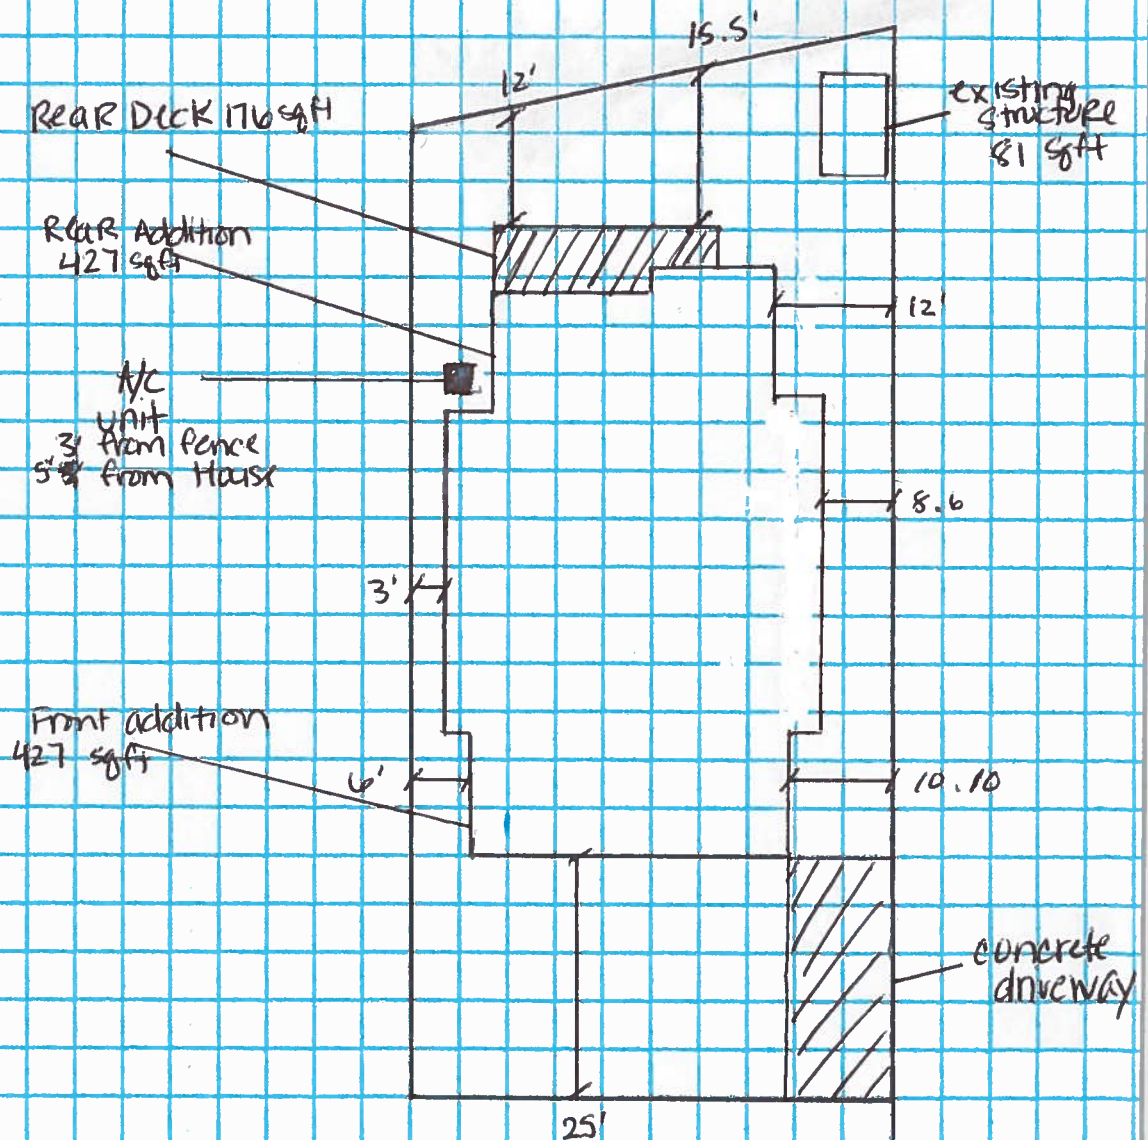 15.5'
12'
Rear Deck 176 sqft
existing
structure
81 sqft
Rear Addition
427 sqft
12'
A/C
unit
3' from fence
5' from House
8.6
3'
Front addition
427 sqft
6'
10.10
concrete
driveway
25'